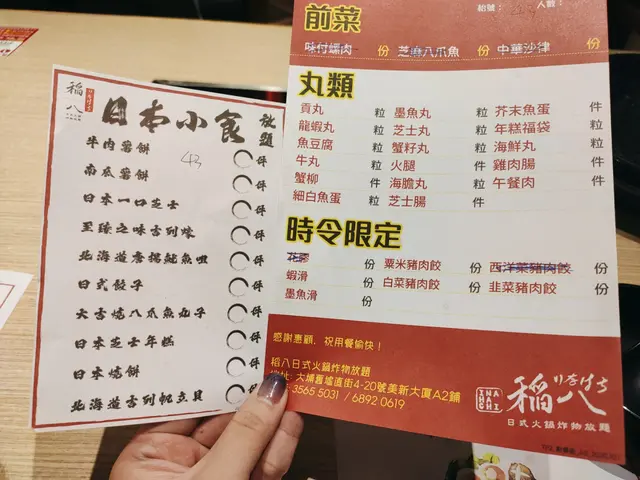 稻八
日本小食
放題
43
牛肉薯餅 件
南瓜薯餅 件
日本一口芝士 件
至臻之味舌列燒 件
北海道唐揚魷魚咀 件
日式餃子 件
大舌燒八爪魚丸子 件
日本芝士年糕 件
日本燒餅 件
北海道舌列帆立貝 件
枱號： 人數：
前菜
味付螺肉 份 芝麻八爪魚 份 中華沙律 份
丸類
貢丸 粒 墨魚丸 粒 芥末魚蛋 件
龍蝦丸 粒 芝士丸 粒 年糕福袋 粒
魚豆腐 粒 蟹籽丸 粒 海鮮丸 粒
牛丸 粒 火腿 件 雞肉腸 件
蟹柳 件 海膽丸 粒 午餐肉 件
細白魚蛋 粒 芝士腸 件
時令限定
花膠 份 粟米豬肉餃 份 西洋菜豬肉餃 份
蝦滑 份 白菜豬肉餃 份 韭菜豬肉餃 份
墨魚滑 份
感謝惠顧，祝用餐愉快！
稻八日式火鍋炸物放題
地址: 大埔舊墟直街4-20號美新大廈A2鋪
3565 5031 / 6892 0619
INAHACHI
稻八
日式火鍋炸物放題